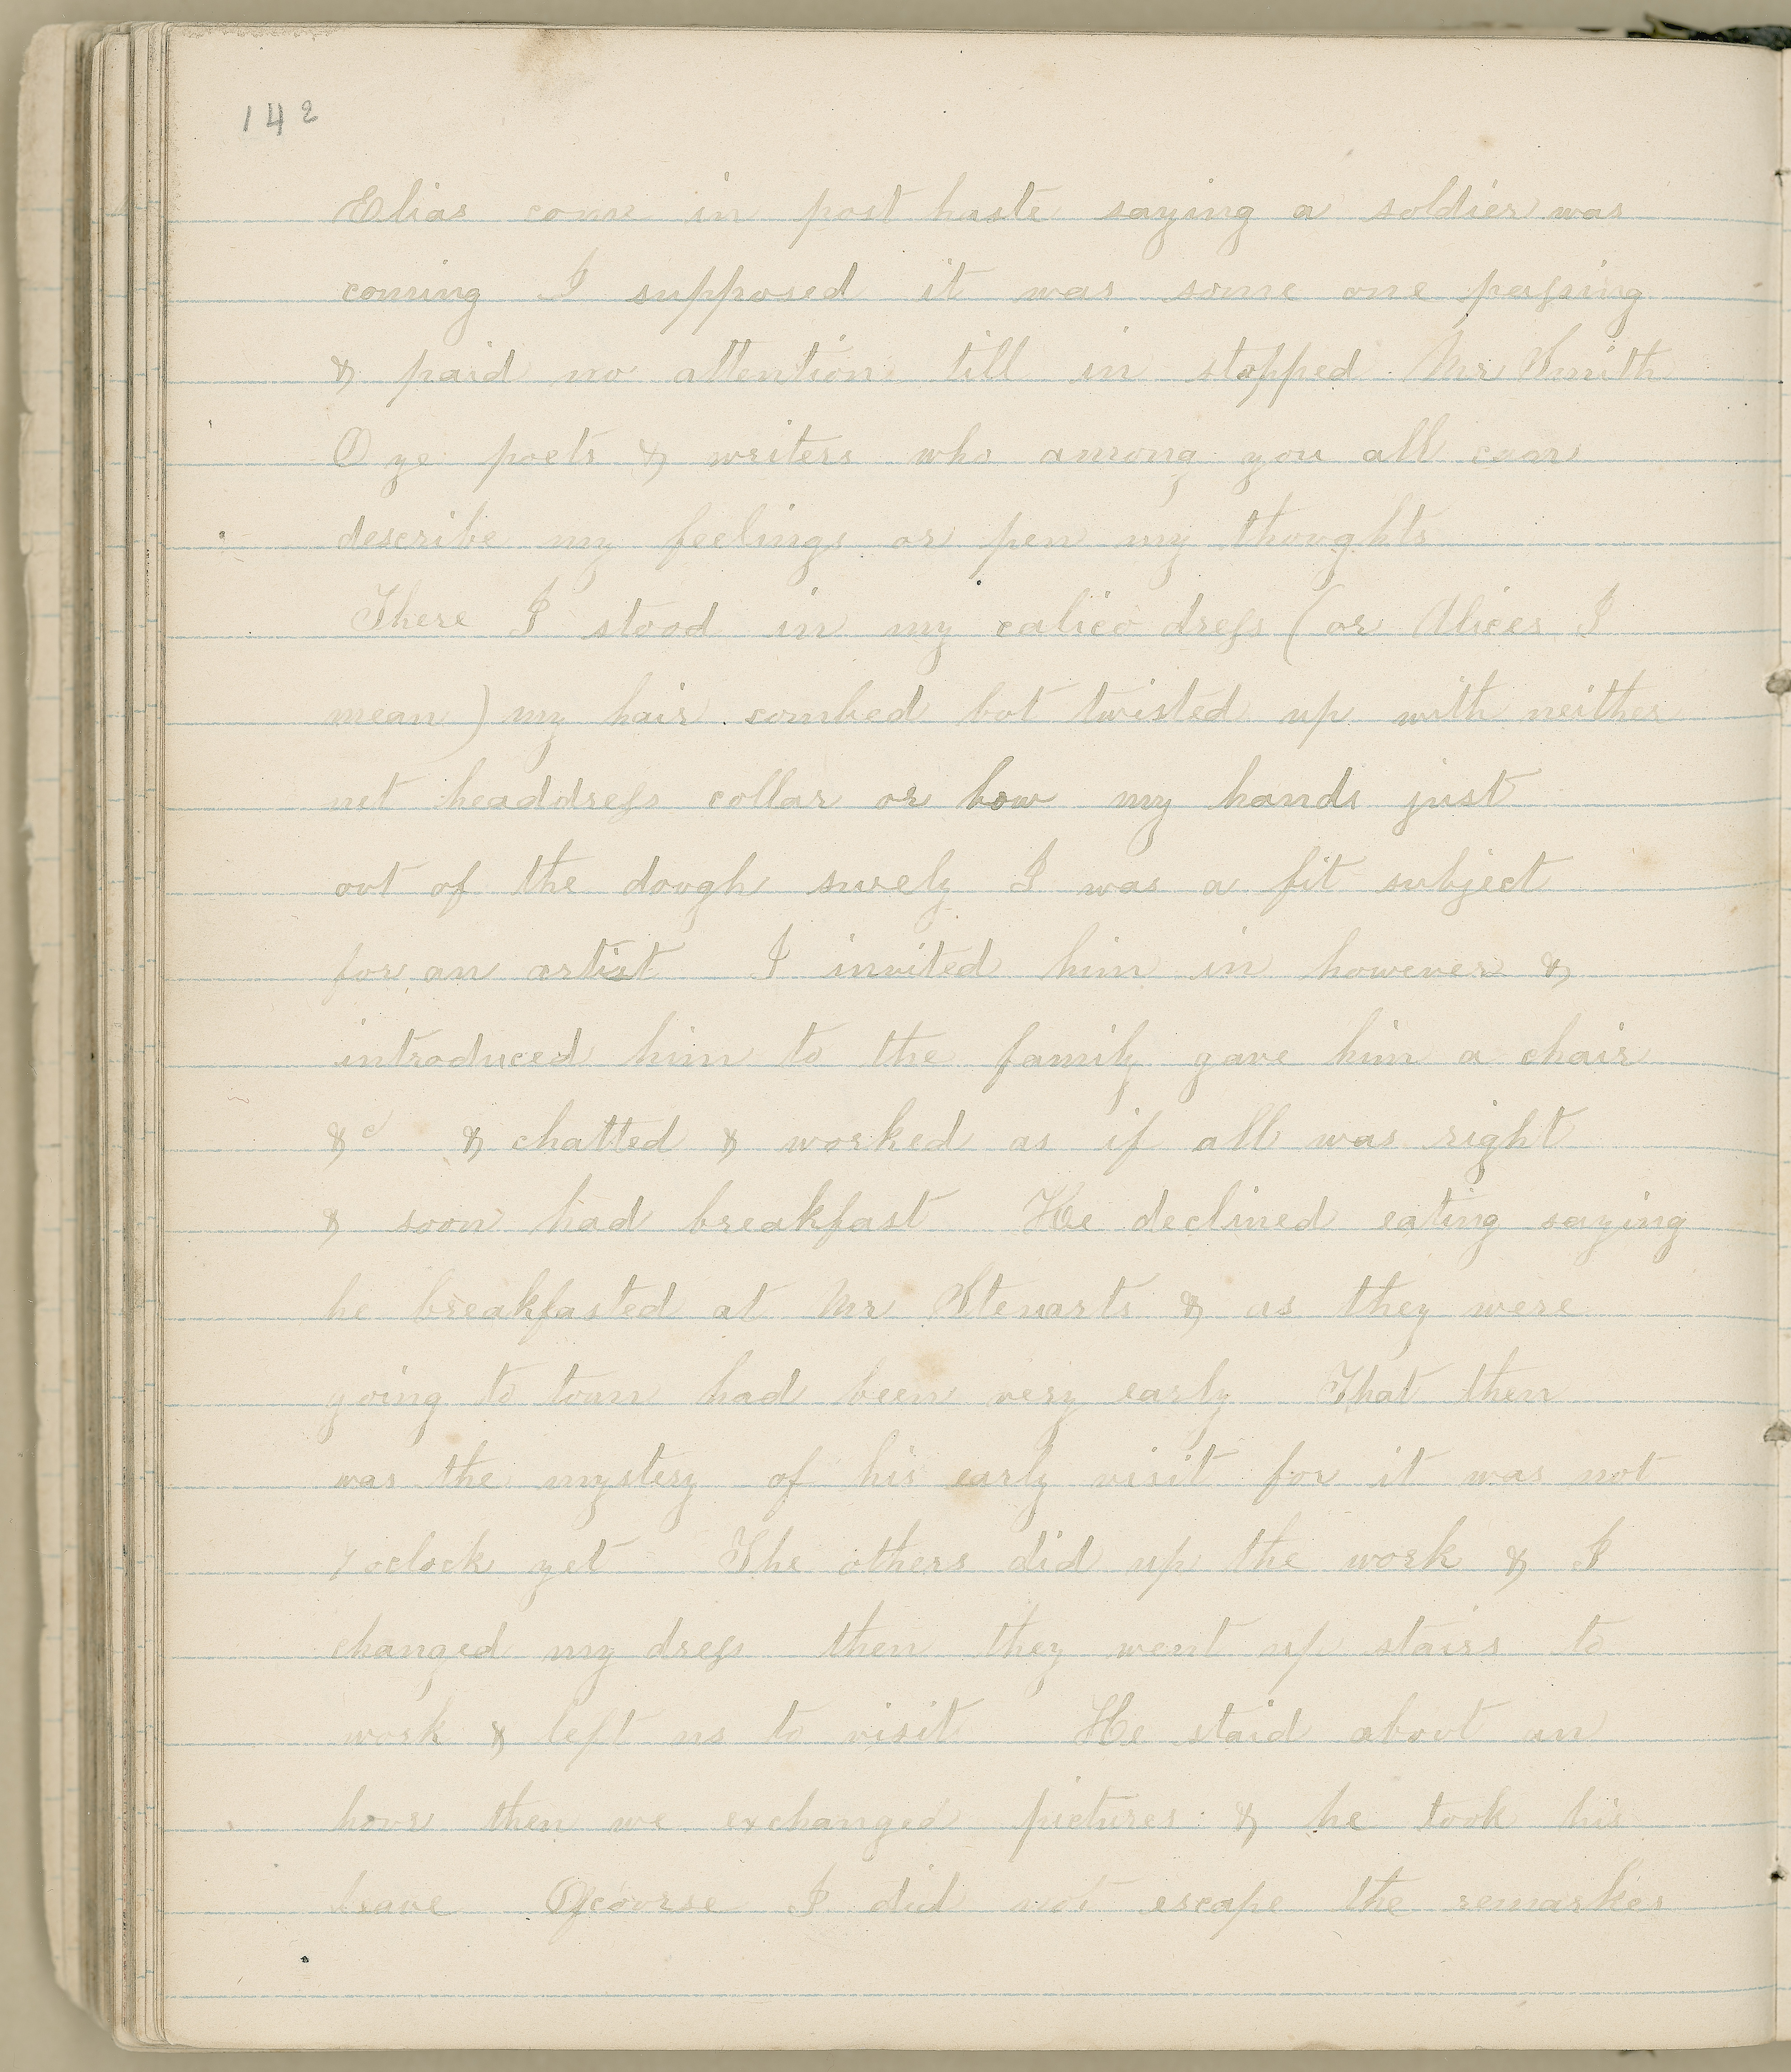 142
Elias came in post haste saying a soldier was
coming I supposed it was some one passing
& paid no attention till in stopped Mr Smith
O ye poets & writers who among you all can
describe my feelings or pen my thoughts
There I stood in my calico dress (or Alices I
mean) my hair combed but twisted up with neither
net headdress collar or bow my hands just
out of the dough surely I was a fit subject
for an artist I invited him in however &
introduced him to the family gave him a chair
&c & chatted & worked as if all was right
& soon had breakfast He declined eating saying
he breakfasted at Mr Stewarts & as they were
going to town had been very early That then
was the mystery of his early visit for it was not
7 oclock yet The others did up the work & I
changed my dress then they went up stairs to
work & left us to visit He staid about an
hour then we exchanged pictures & he took his
leave Ofcourse I did not escape the remarks